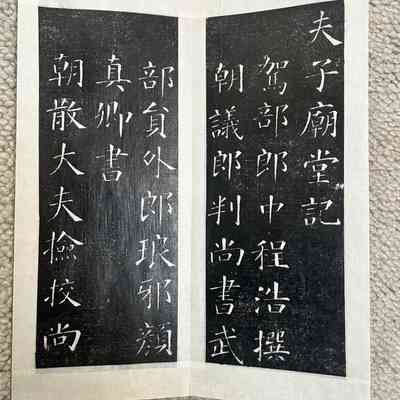 夫子廟堂記
駕部郎中程浩撰
朝議郎判尚書武
部貟外郎琅邪顏
真卿書
朝散大夫撿挍尚